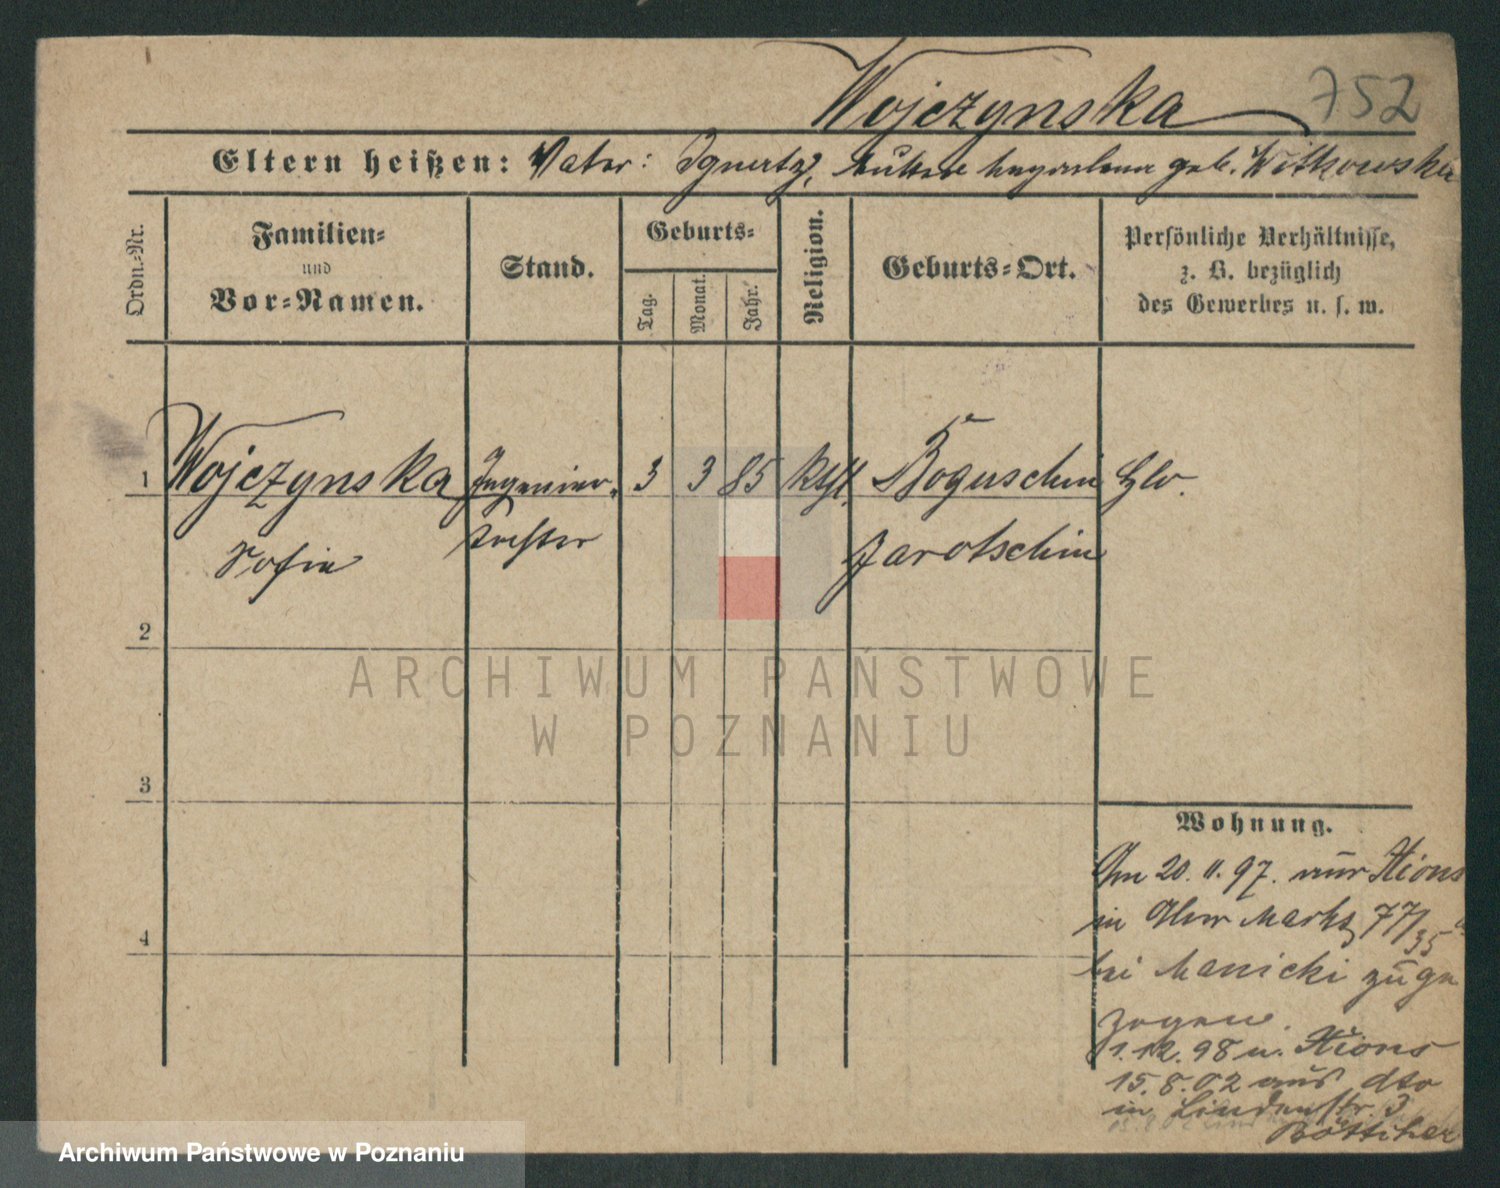 Wojczynska 752
Eltern heißen: Vater: Ignatz, Mutter Magdalena geb. Witkowska
Ordn.-Nr.
Familien-
und
Vor-Namen.
Stand.
Geburts-
Tag.
Monat.
Jahr.
Religion.
Geburts-Ort.
Persönliche Verhältnisse,
z. B. bezüglich
des Gewerbes u. s. w.
1 Wojczynska Ingenieur- 3 3 85 kth. Boguschin
Sofie tochter Jarotschin
2
3
4
Wohnung.
Am 20. 11. 97. aus Xions
in Alter Markt 77/35
bei Manicki zuge
zogen.
1.12.98 n. Xions
15.8.02 aus dto
in Lindenstr. 3
Bötticher
ARCHIWUM PAŃSTWOWE
W POZNANIU
Archiwum Państwowe w Poznaniu